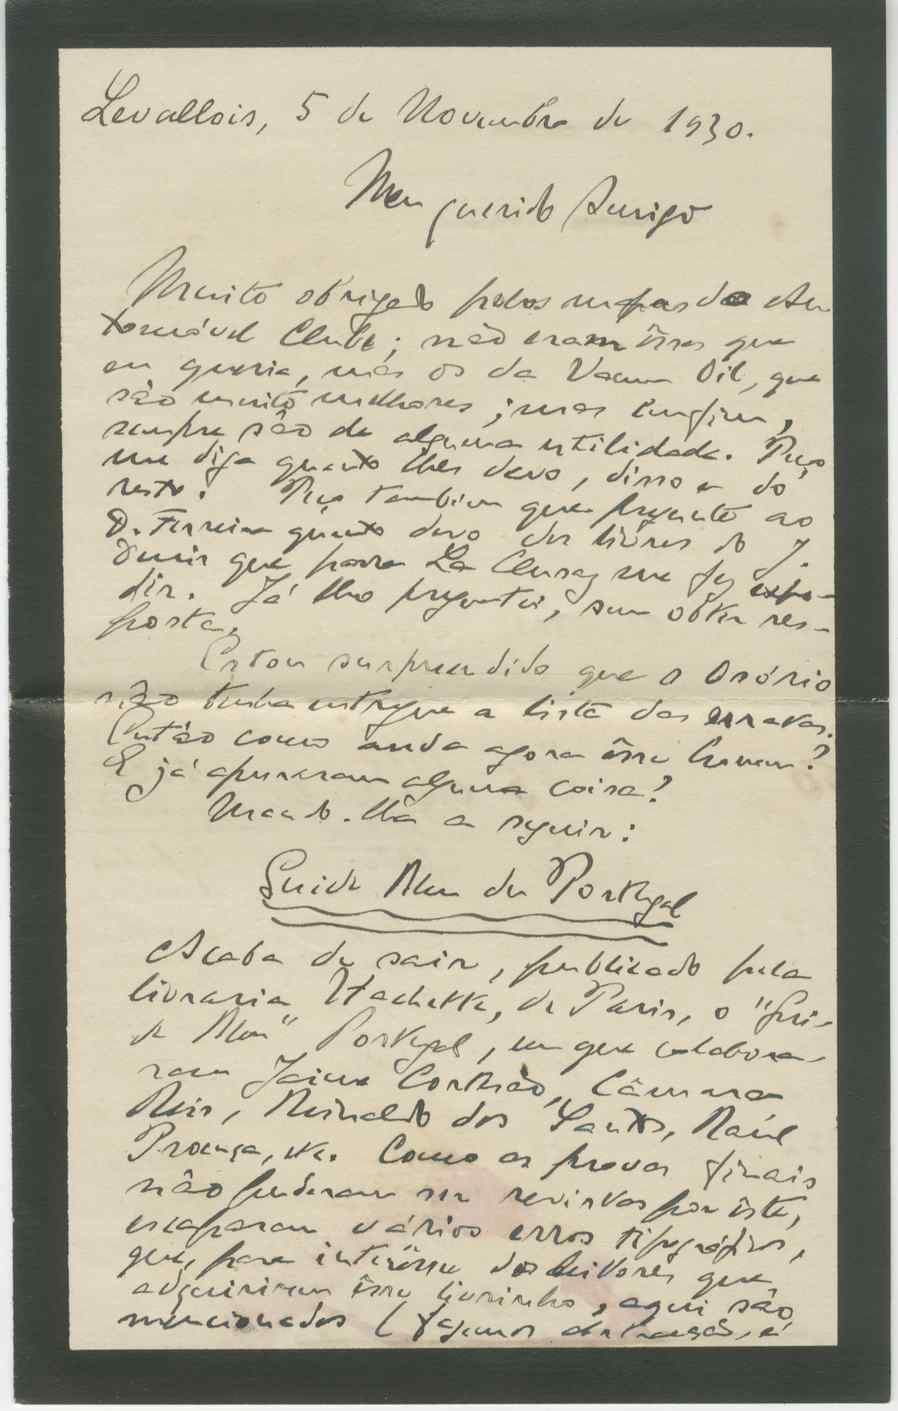 Levallois, 5 de Novembro de 1930.
Meu querido Amigo
Muito obrigado pelos mapas do Au-
tomóvel Clube; não eram êsses que
eu queria, mas os da Vacuum Oil, que
são muito melhores; mas enfim,
sempre são de alguma utilidade. Peço
me diga quanto lhes devo, disso e do
resto. Peço tambêm que pregunte ao
D. Ferreira quanto devo dos livros do J.
que para La Clusaz me fez expe-
dir. Já lho preguntei, sem obter res-
posta.
Estou surpreendido que o Osório
não tenha entregue a lista das erratas.
Então como anda agora êsse homem?
E já apuraram alguma coisa?
Mando-lha a seguir:
Guide Bleu du Portugal
Acaba de sair, publicado pela
livraria Hachette, de Paris, o "Gui-
de Bleu" Portugal, em que colabora-
ram Jaime Cortesão, Câmara
Reis, Reinaldo dos Santos, Raúl
Proença, etc. Como as provas finais
não puderam ser revistas por êste,
escaparam vários erros tipográficos,
que, para interêsse dos leitores que
adquirirem êsse livrinho, aqui são
mencionados (